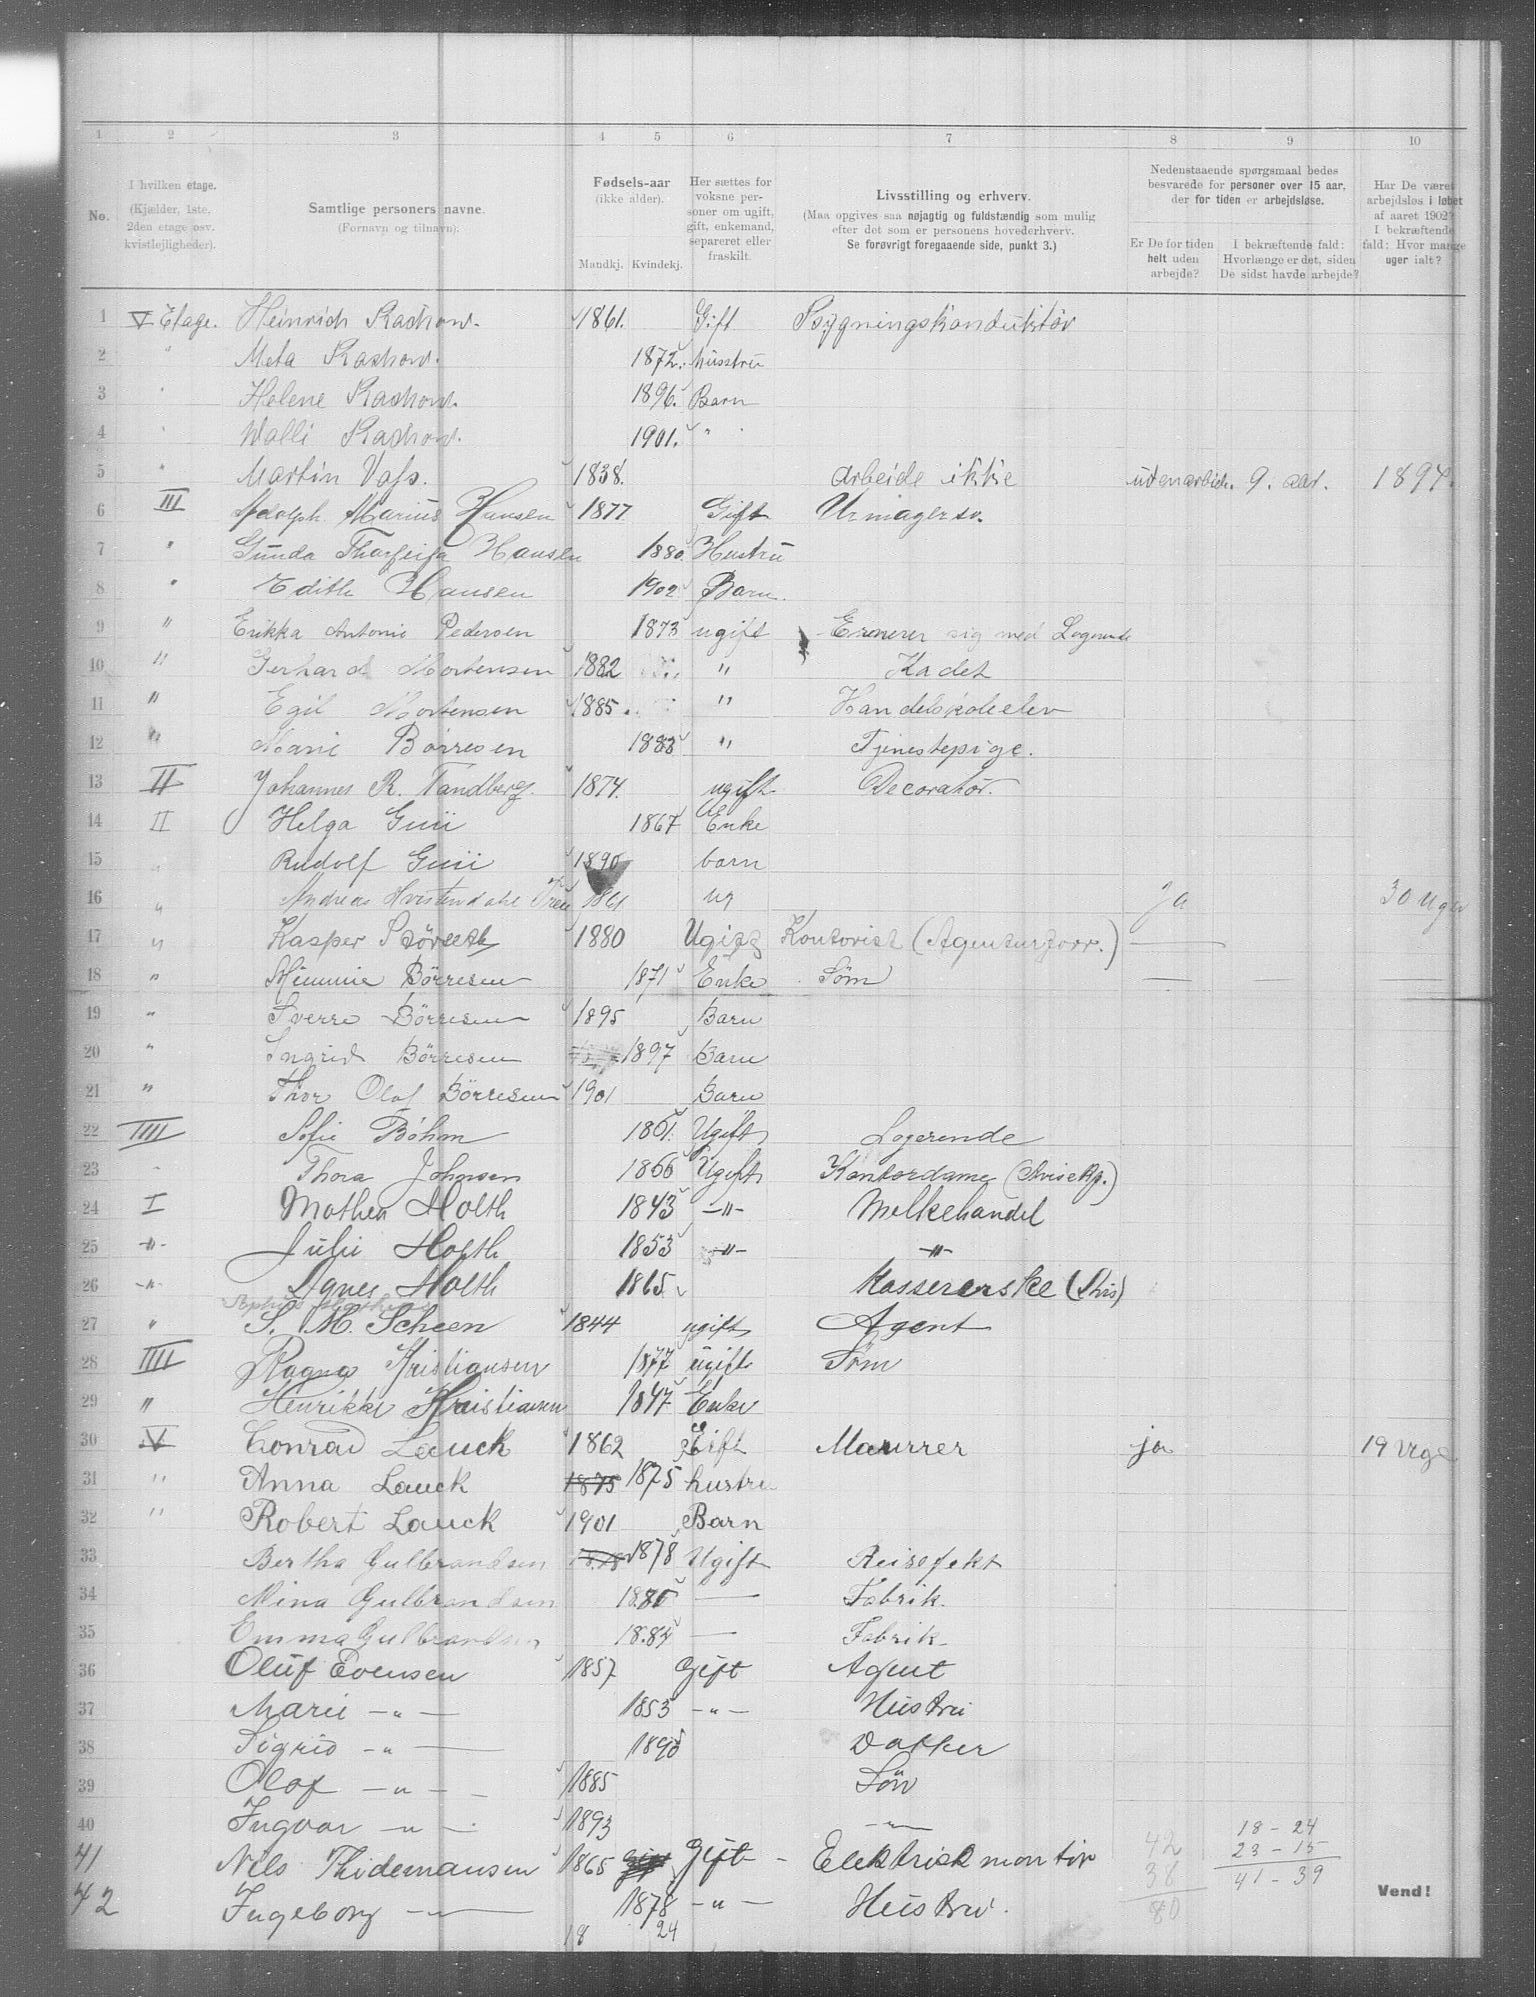 1 2 3 4 5 6 7 8 9 10
No.
I hvilken etage.
(Kjælder, 1ste, 2den etage osv. kvistlejligheder).
Samtlige personers navne.
(Fornavn og tilnavn).
Fødsels-aar
(ikke alder).
Mandkj. Kvindekj.
Her sættes for voksne personer om ugift, gift, enkemand, separeret eller fraskilt.
Livsstilling og erhverv.
(Maa opgives saa nøjagtig og fuldstændig som mulig efter det som er personens hovederhverv.
Se forøvrigt foregaaende side, punkt 3.)
Nedenstaaende spørgsmaal bedes besvarede for personer over 15 aar, der for tiden er arbejdsløse.
Er De for tiden helt uden arbejde?
I bekræftende fald: Hvorlænge er det, siden De sidst havde arbejde?
Har De været arbejdsløs i løbet af aaret 1902? I bekræftende fald: Hvor mange uger ialt?
1 V Etage. Heinrich Rachow. 1861. Gift Bygningskonduktør
2 " Meta Rachow. 1872. hüsstrü
3 " Helene Rachow. 1896. Barn
4 " Walli Rachow. 1901. "
5 " Martin Vass. 1838. Arbeide ikke uden arbeide. 9. aar. 1894.
6 III Adolph Marius Hansen 1877 Gift Urmagersv.
7 " Gunda Hansen 1880. Hustrü
8 " Edith Hansen 1902 Barn.
9 " Erikka Antonie Pedersen 1873 ugift Ernerer sig med Logerende
10 " Gerhard Mortensen 1882 " Kadet
11 " Egil Mortensen 1885. " Handelskoleelev
12 " Marie Børresen 1883 " Tjenestepige.
13 II Johannes R. Tandberg. 1874. ugift Decoratør.
14 II Helga 1867 Enke
15 " Rudolf 1890 barn
16 " Andreas Hvistendahl 1861 ug ja 30 uger
17 " Kasper 1880 Ugift Kontorist (Agenturforr.) —
18 " Mimmie Börresen 1871 Enke Söm —
19 " Sverre Börresen 1895 Barn
20 " Ingrid Börresen 1897 Barn
21 " Thor Olaf Börresen 1901 Barn
22 IIII Sofie Bøhm 1861. Ugift Logerende
23 Thora Johnsen 1866 Ugift Kontordame
24 I Mathea Holth 1843 —"— Melkehandel
25 —"— Julie Holth 1853 —"— —"—
26 —"— Agnes Holth 1865. Kassererske
27 " S. M. Scheen 1844 ugift Agent
28 IIII Ragna Kristiansen 1877 ugift Søm
29 " Henrikke Kristiansen 1847 Enke
30 V Conrad Lauck 1862 Gift Maurrer ja 19 uge
31 " Anna Lauck 1875 1875 hustru
32 " Robert Lauck 1901 Barn
33 Bertha Gulbrandsen 1878 1878 Ugift Reiseefekt
34 Mina Gulbrandsen 1880 — Fabrik.
35 Emma Gulbrandsen 1884 — Fabrik.
36 Oluf Evensen 1857 Gift Agent
37 Marie —"— 1853 —"— Hüstru
38 Sigrid —"— 1890 Datter
39 Olaf —"— 1885 Sön
40 Ingvar —"— 1893 —"—
41 Nils Thidemansen 1865 Gift Gift — Elektrisk montør
42 Ingeborg —"— 1878 —"— Hüstru.
18 24
42
38
80
18 - 24
23 - 15
41 - 39
Vend!